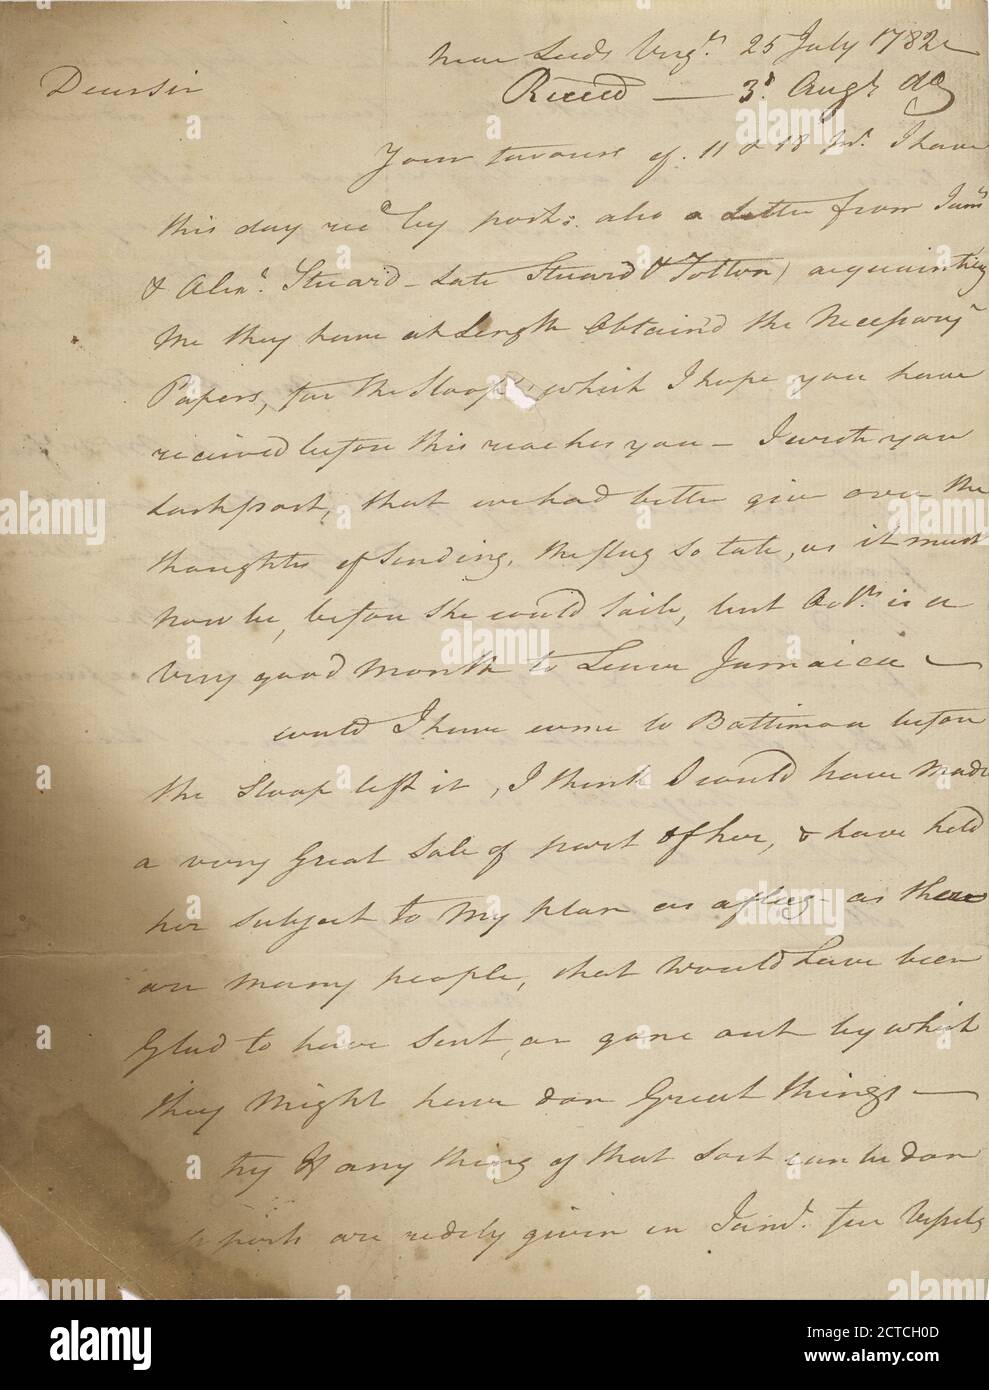 Near Leeds Virgª. 25 July 1782
Dear Sir
Receed — 3d. Augt. do
Your favours of. 11 & 18 I have
this day recd by post: also a Letter from Jams
& Alexr. Steuard - Late Steuard & Totton) acquainting
Me they have at Length Obtain'd the Necessary
Papers, for the Sloop, which I hope you have
received before this reaches you — I wrote you
Last post, that we had better give over the
thoughts of Sending, the flag so late, as it must
Now be, before She could Saile, but Octr. is a
Very good Month to Leave Jamaica —
could I have come to Baltimoa before
the Sloop left it, I think I would have made
a very Great Sale of part of her, & have held
her Subject to My plan as a flag - as there
are many people, that would have been
Glad to have Sent, or gone out by which
they Might have don Great things —
try if any thing of that Sort can be don
are redely given in for Vessels
alamy
Image ID: 2CTCH0D
www.alamy.com